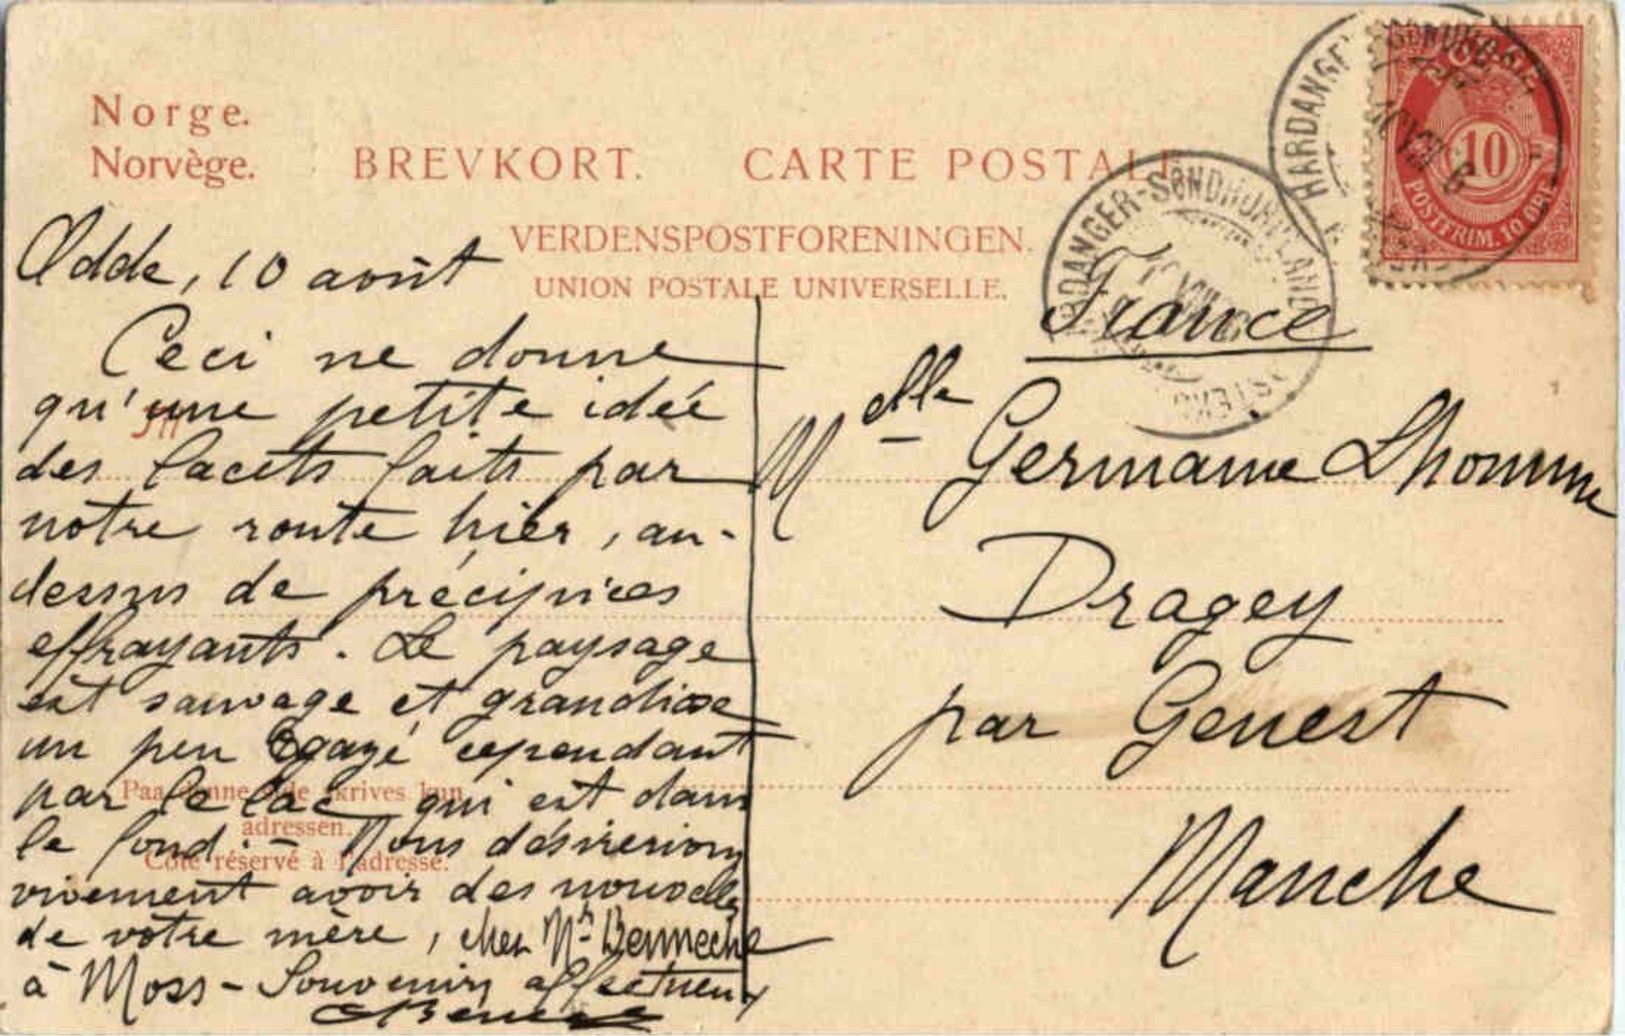 Norge.
Norvège.
BREVKORT. CARTE POSTALE
VERDENSPOSTFORENINGEN.
UNION POSTALE UNIVERSELLE.
HARDANGER
10
POSTFRIM. 10 ØRE
Odde, 10 août
Ceci ne donne
qu'une petite idée
des lacets faits par
notre route hier, au-
dessus de précipices
effrayants. Le paysage
est sauvage et grandiose
un peu égayé cependant
par le lac qui est dans
le fond. - Nous désirerions
vivement avoir des nouvelles
de votre mère, chez Mr
à Moss - Souvenirs affectueux
Paa denne side skrives kun
adressen.
Côté réservé à l'adresse.
France
Melle Germaine Lhomme
Dragey
par Genest
Manche